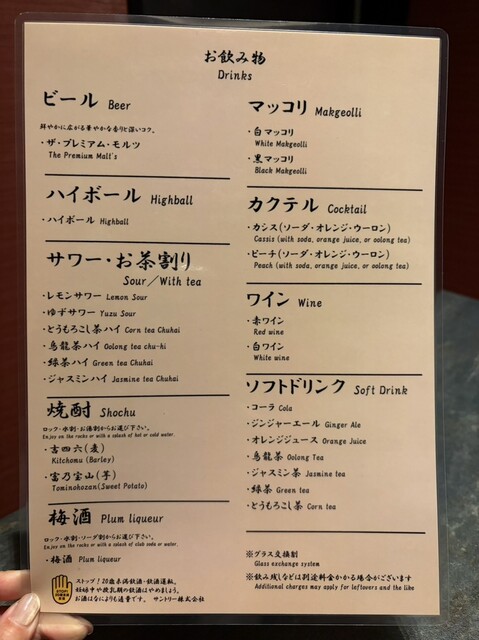 お飲み物
Drinks
ビール Beer
鮮やかに広がる華やかな香りと深いコク。
・ザ・プレミアム・モルツ
The Premium Malt's
ハイボール Highball
・ハイボール Highball
サワー・お茶割り
Sour／With tea
・レモンサワー Lemon Sour
・ゆずサワー Yuzu Sour
・とうもろこし茶ハイ Corn tea Chuhai
・烏龍茶ハイ Oolong tea chu-hi
・緑茶ハイ Green tea Chuhai
・ジャスミンハイ Jasmine tea Chuhai
焼酎 Shochu
ロック・水割・お湯割からお選び下さい。
Enjoy on the rocks or with a splash of hot or cold water.
・吉四六(麦)
Kitchomu (Barley)
・富乃宝山(芋)
Tominohozan(Sweet Potato)
梅酒 Plum liqueur
ロック・水割・ソーダ割からお選び下さい。
Enjoy on the rocks or with a splash of club soda or water.
・梅酒 Plum liqueur
STOP!
ストップ！20歳未満飲酒・飲酒運転。
妊娠中や授乳期の飲酒はやめましょう。
お酒はなによりも適量です。 サントリー株式会社
マッコリ Makgeolli
・白マッコリ
White Makgeolli
・黒マッコリ
Black Makgeolli
カクテル Cocktail
・カシス(ソーダ・オレンジ・ウーロン)
Cassis (with soda, orange juice, or oolong tea)
・ピーチ(ソーダ・オレンジ・ウーロン)
Peach (with soda, orange juice, or oolong tea)
ワイン Wine
・赤ワイン
Red wine
・白ワイン
White wine
ソフトドリンク Soft Drink
・コーラ Cola
・ジンジャーエール Ginger Ale
・オレンジジュース Orange Juice
・烏龍茶 Oolong Tea
・ジャスミン茶 Jasmine tea
・緑茶 Green tea
・とうもろこし茶 Corn tea
※グラス交換制
Glass exchange system
※飲み残しなどは別途料金かかる場合がございます
Additional charges may apply for leftovers and the like